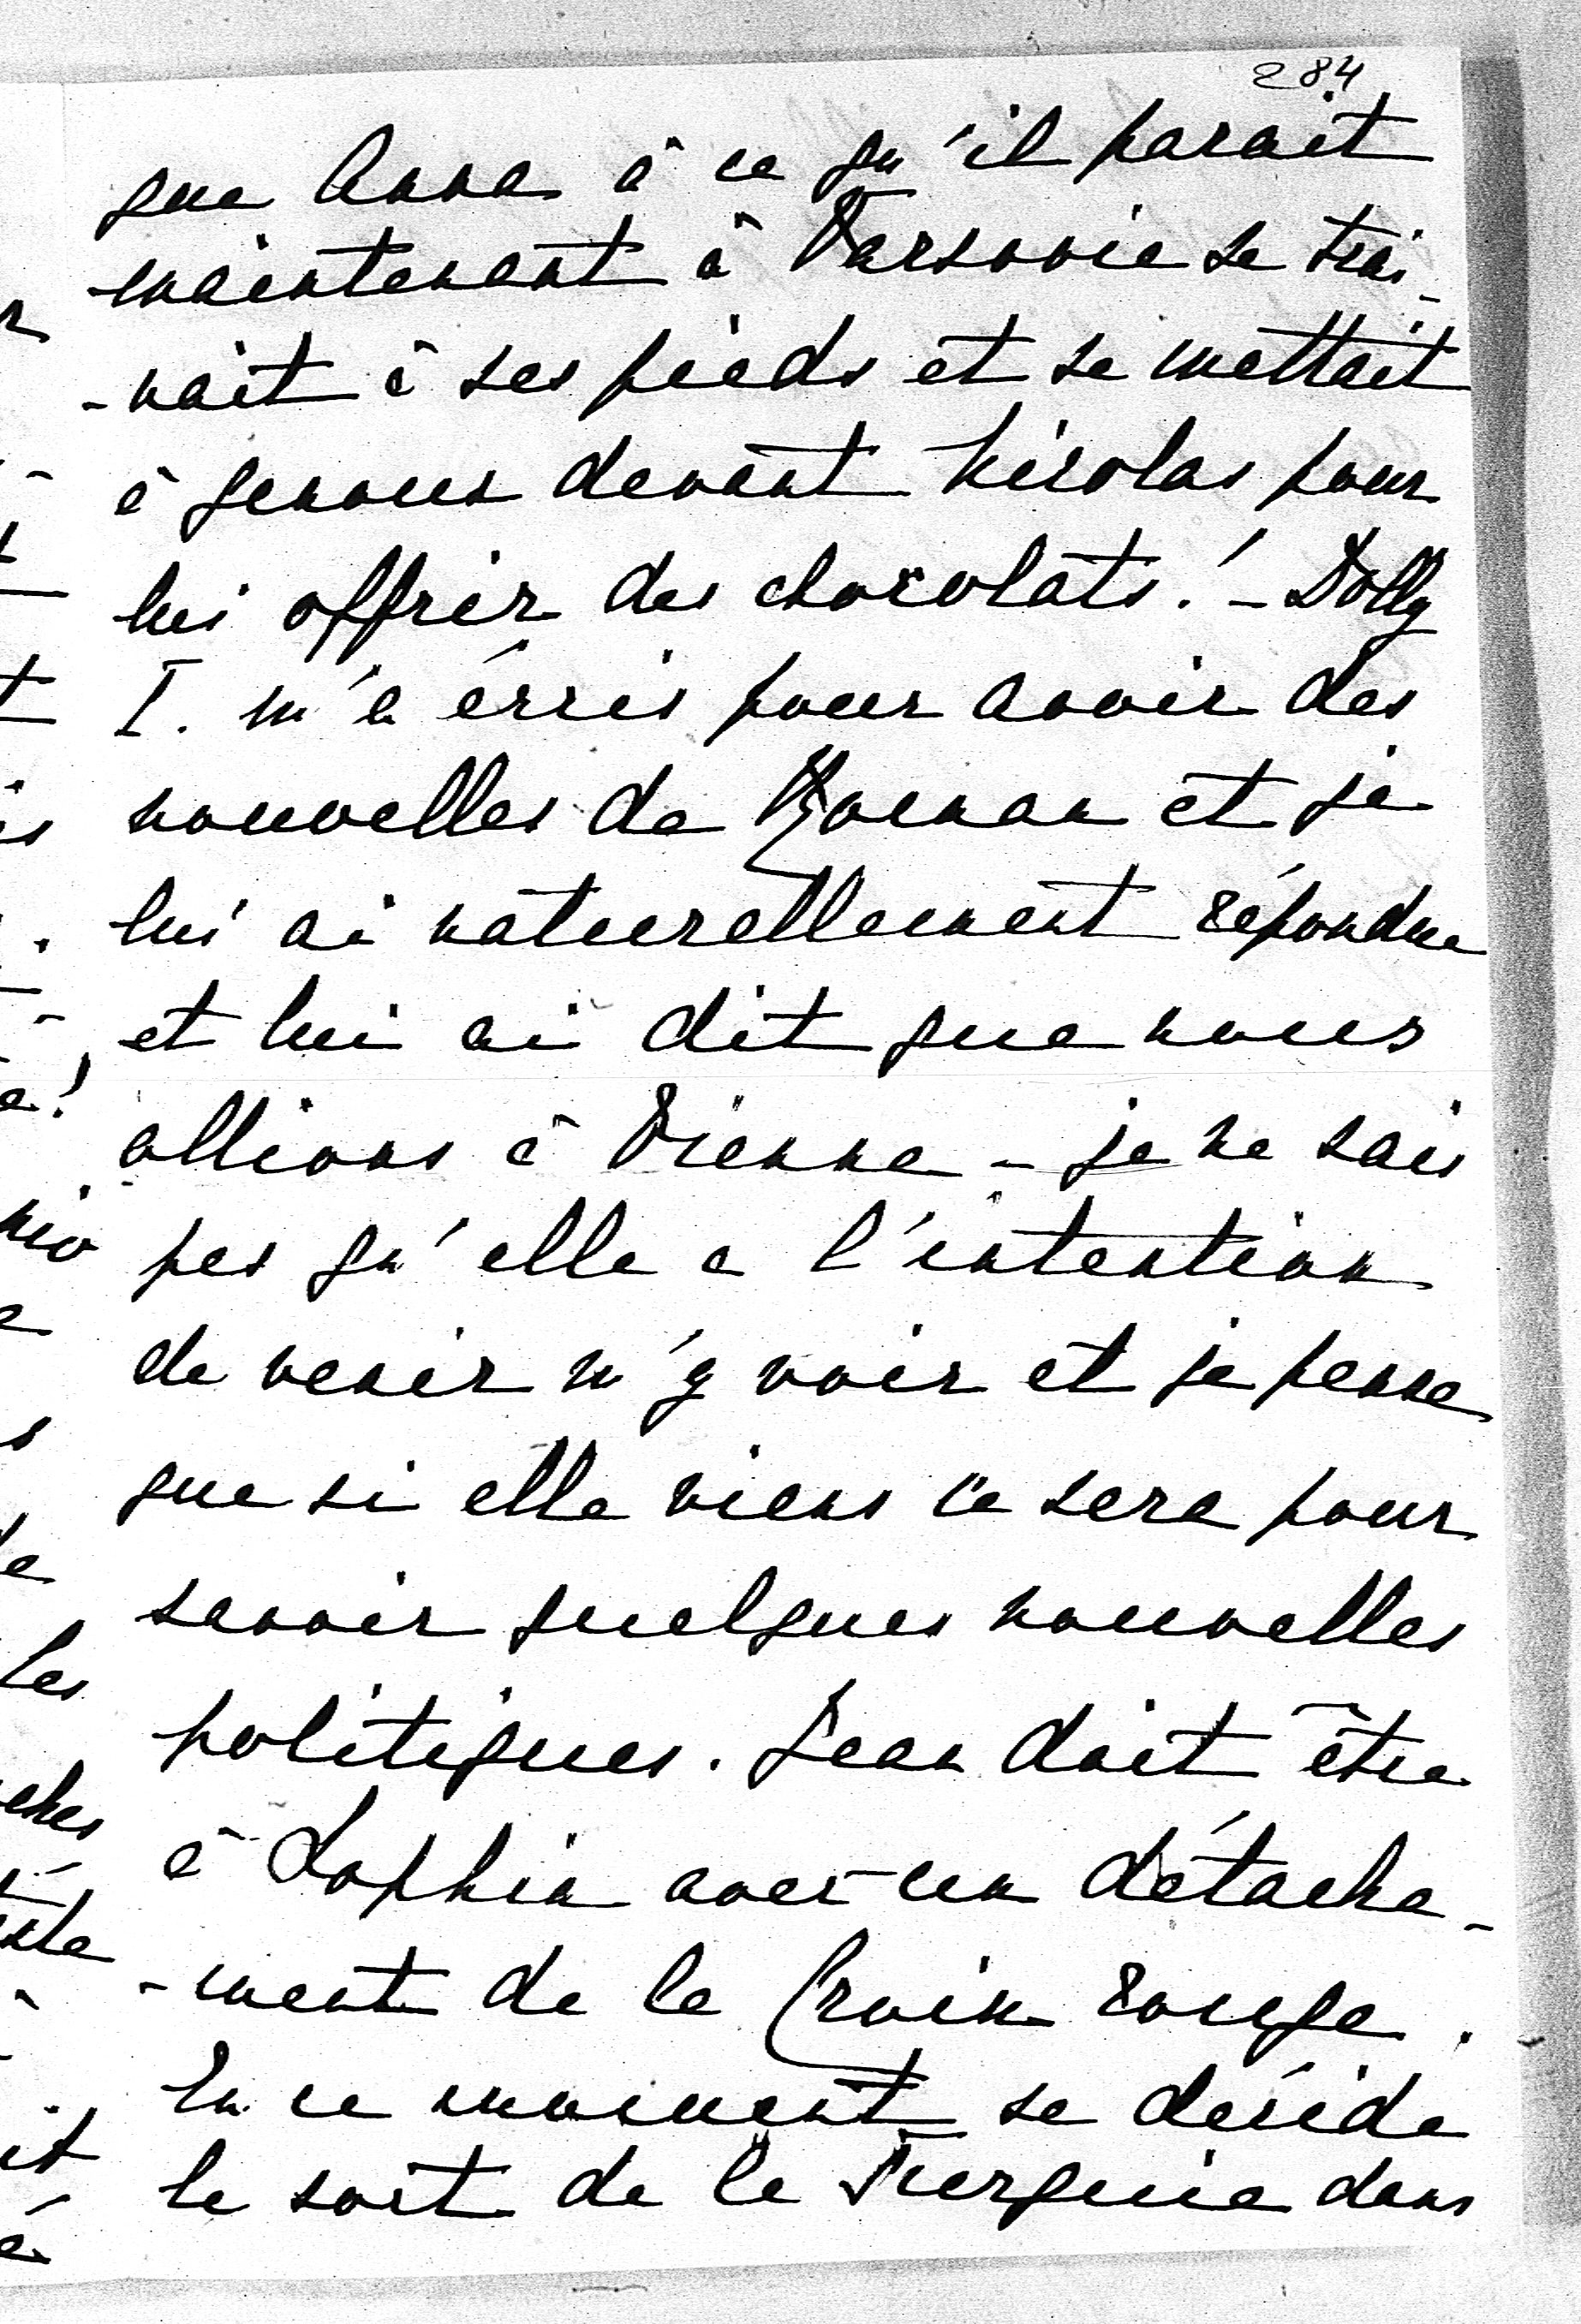 284
que Anna à ce qu'il parait
maintenant à Varsovie se traî-
-nait à ses pieds et se mettait
à genoux devant Nicolas pour
lui offrir des chocolats! - Dolly
I. m'a écris pour avoir des
nouvelles de et je
lui ai naturellement répondue
et lui ai dit que nous
allions à Vienne - je ne sais
pas qu'elle a l'intention
de venir m'y voir et je pense
que si elle viens ce sera pour
savoir quelques nouvelles
politiques. Jean doit être
à Sophia avec un détache-
-ment de la Croix rouge.
En ce moment se décide
le sort de la Turquie dans